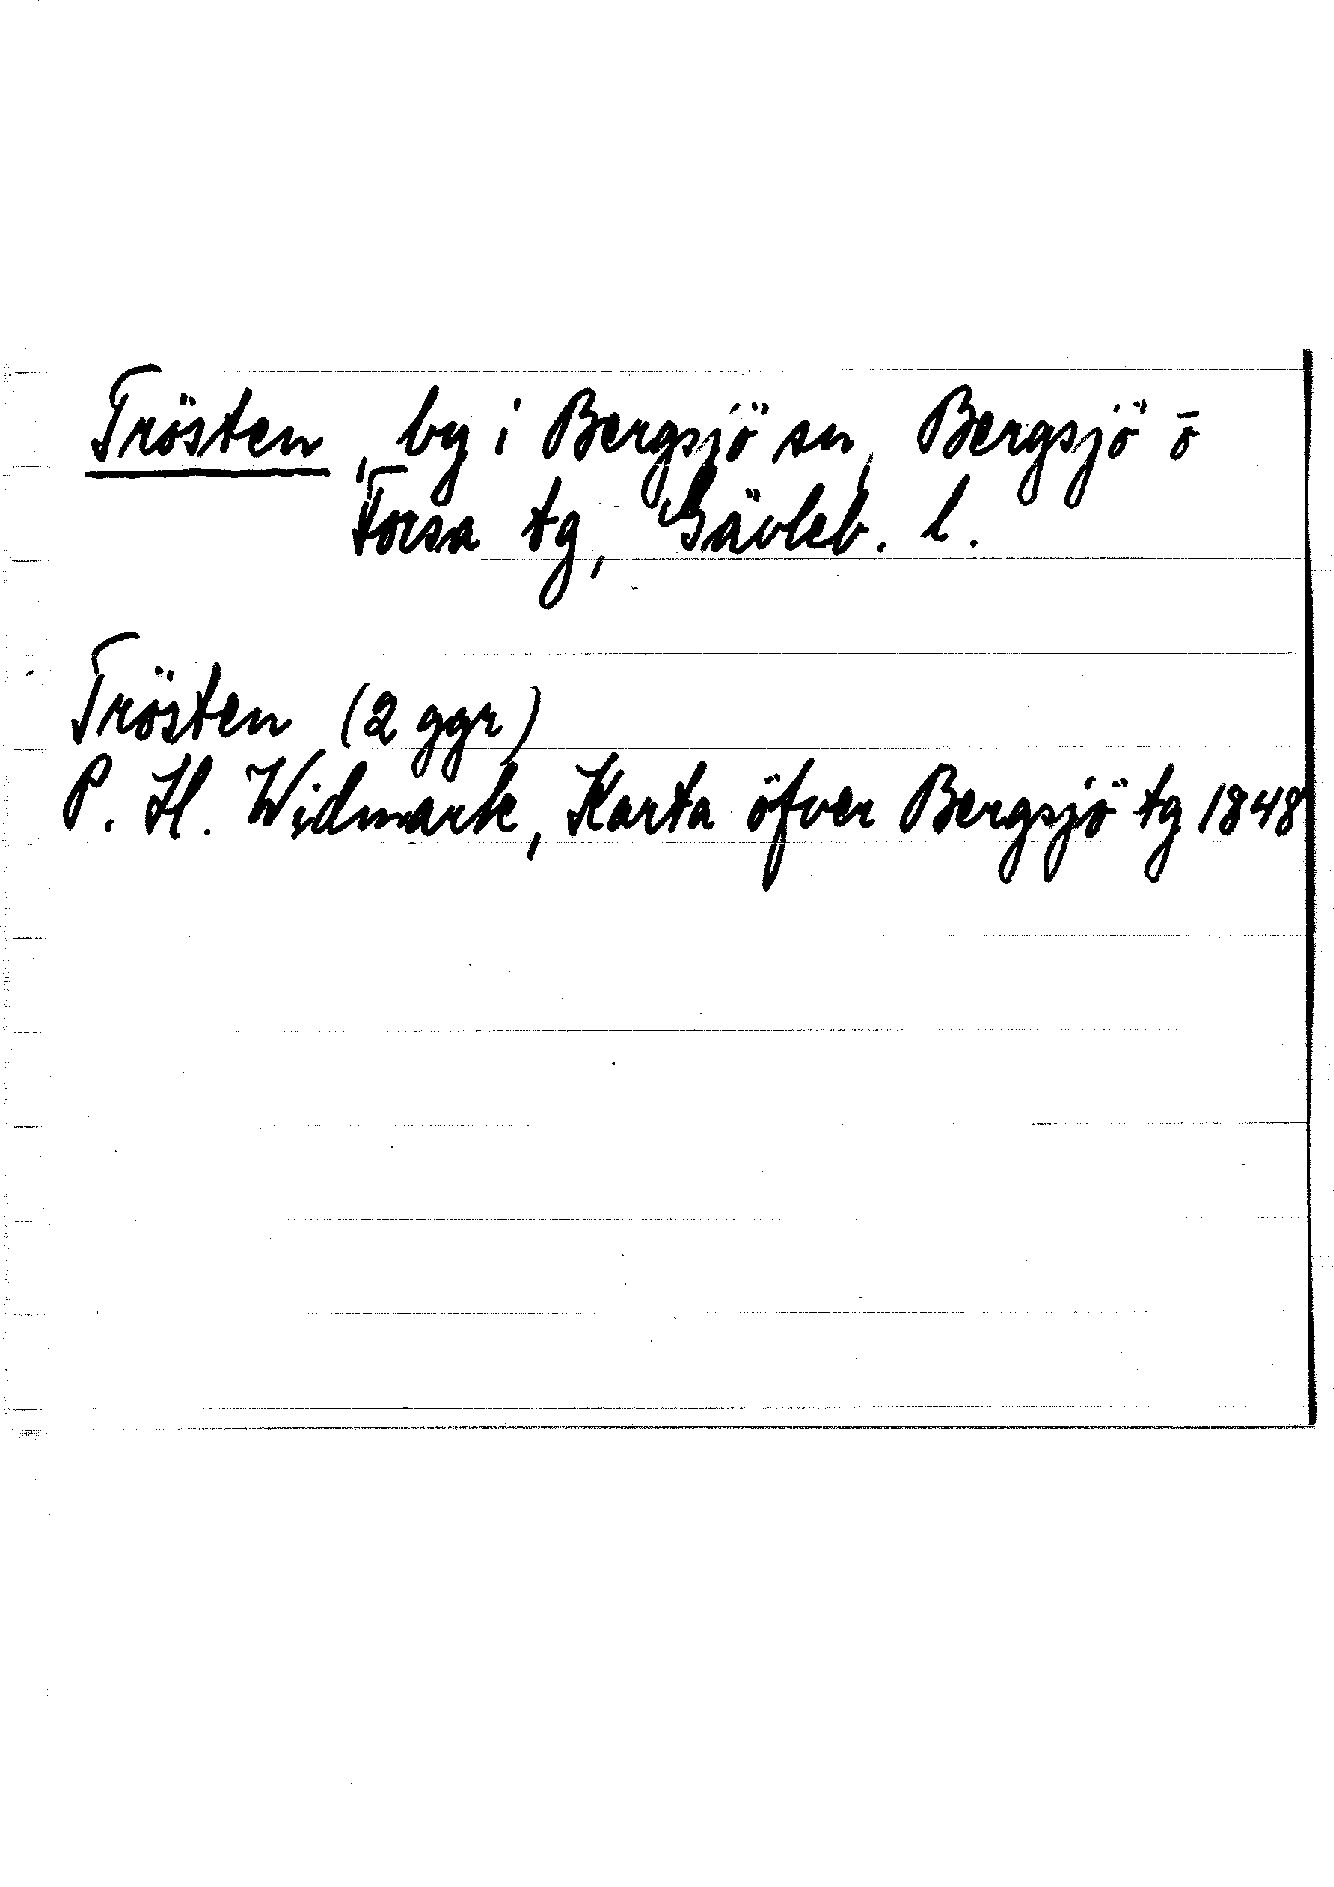 Trösten, by i Bergsjö sn, Bergsjö o
Forsa tg, Gävleb. l.
Trösten (2 ggr)
P. H. Widmark, Karta öfver Bergsjö tg 1848